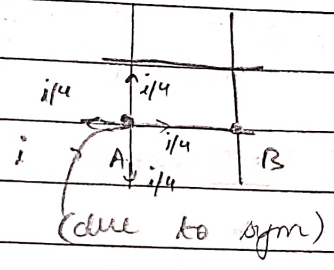 i/4 i/4
i/4
i A B
i/4
(due to sym)